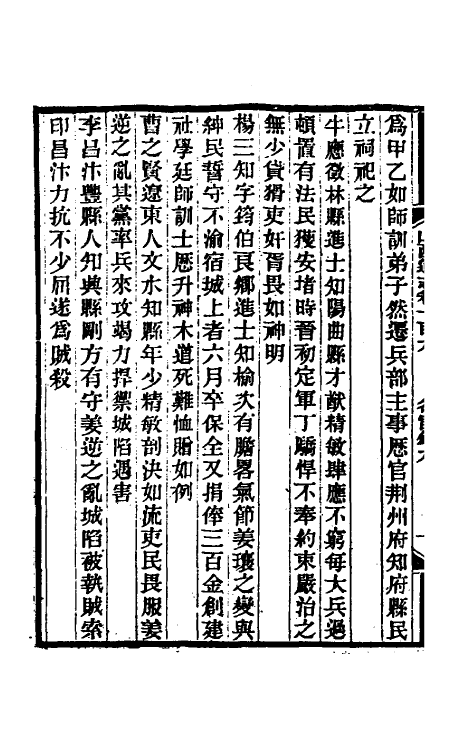 爲甲乙如師訓弟子然遷兵部主事歷官荆州府知府縣民
立祠祀之
牛應徵林縣進士知陽曲縣才猷精敏肆應不窮每大兵過
頓置有法民獲安堵時晉初定軍丁驕悍不奉約束嚴治之
無少貸猾吏奸胥畏如神明
楊三知字筠伯良鄉進士知榆次有膽畧氣節姜瓖之變與
紳民誓守不渝宿城上者六月卒保全又捐俸三百金創建
社學廷師訓士歷升神木道死難恤贈如例
曹之賢遼東人文水知縣年少精敏剖決如流吏民畏服姜
逆之亂其黨率兵來攻竭力捍禦城陷遇害
李昌汴豐縣人知興縣剛方有守姜逆之亂城陷被執賊索
印昌汴力抗不少屈遂爲賊殺